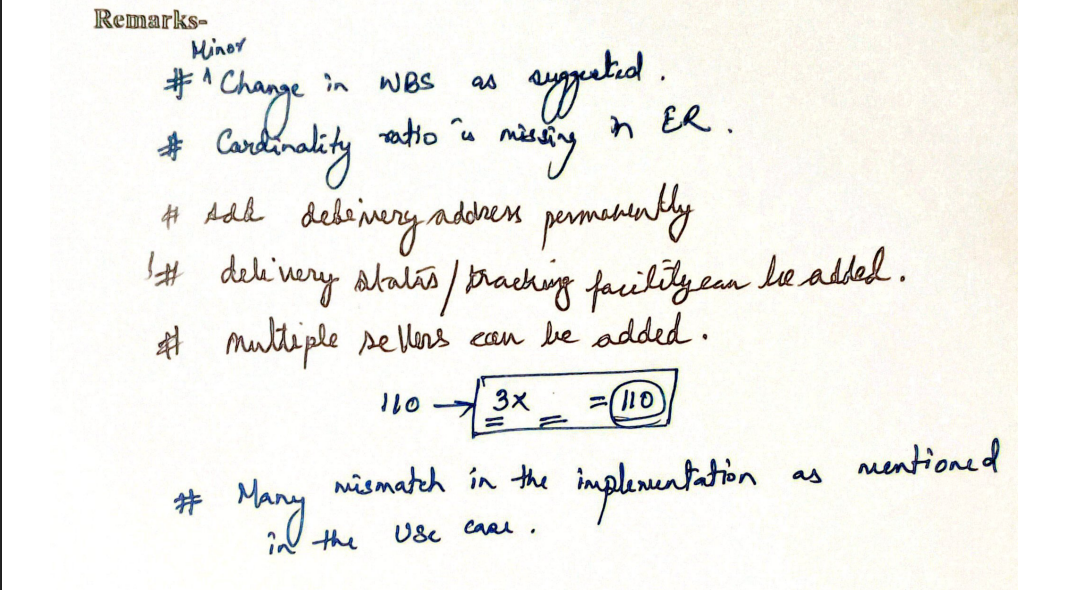 Remarks-
Minor
# ^ Change in WBS as suggested.
# Cardinality ratio is missing in ER.
# Add delivery address permanently
# delivery status/tracking facility can be added.
# multiple sellers can be added.
110 → 3x _ = 110
# Many mismatch in the implementation as mentioned
in the Use case.